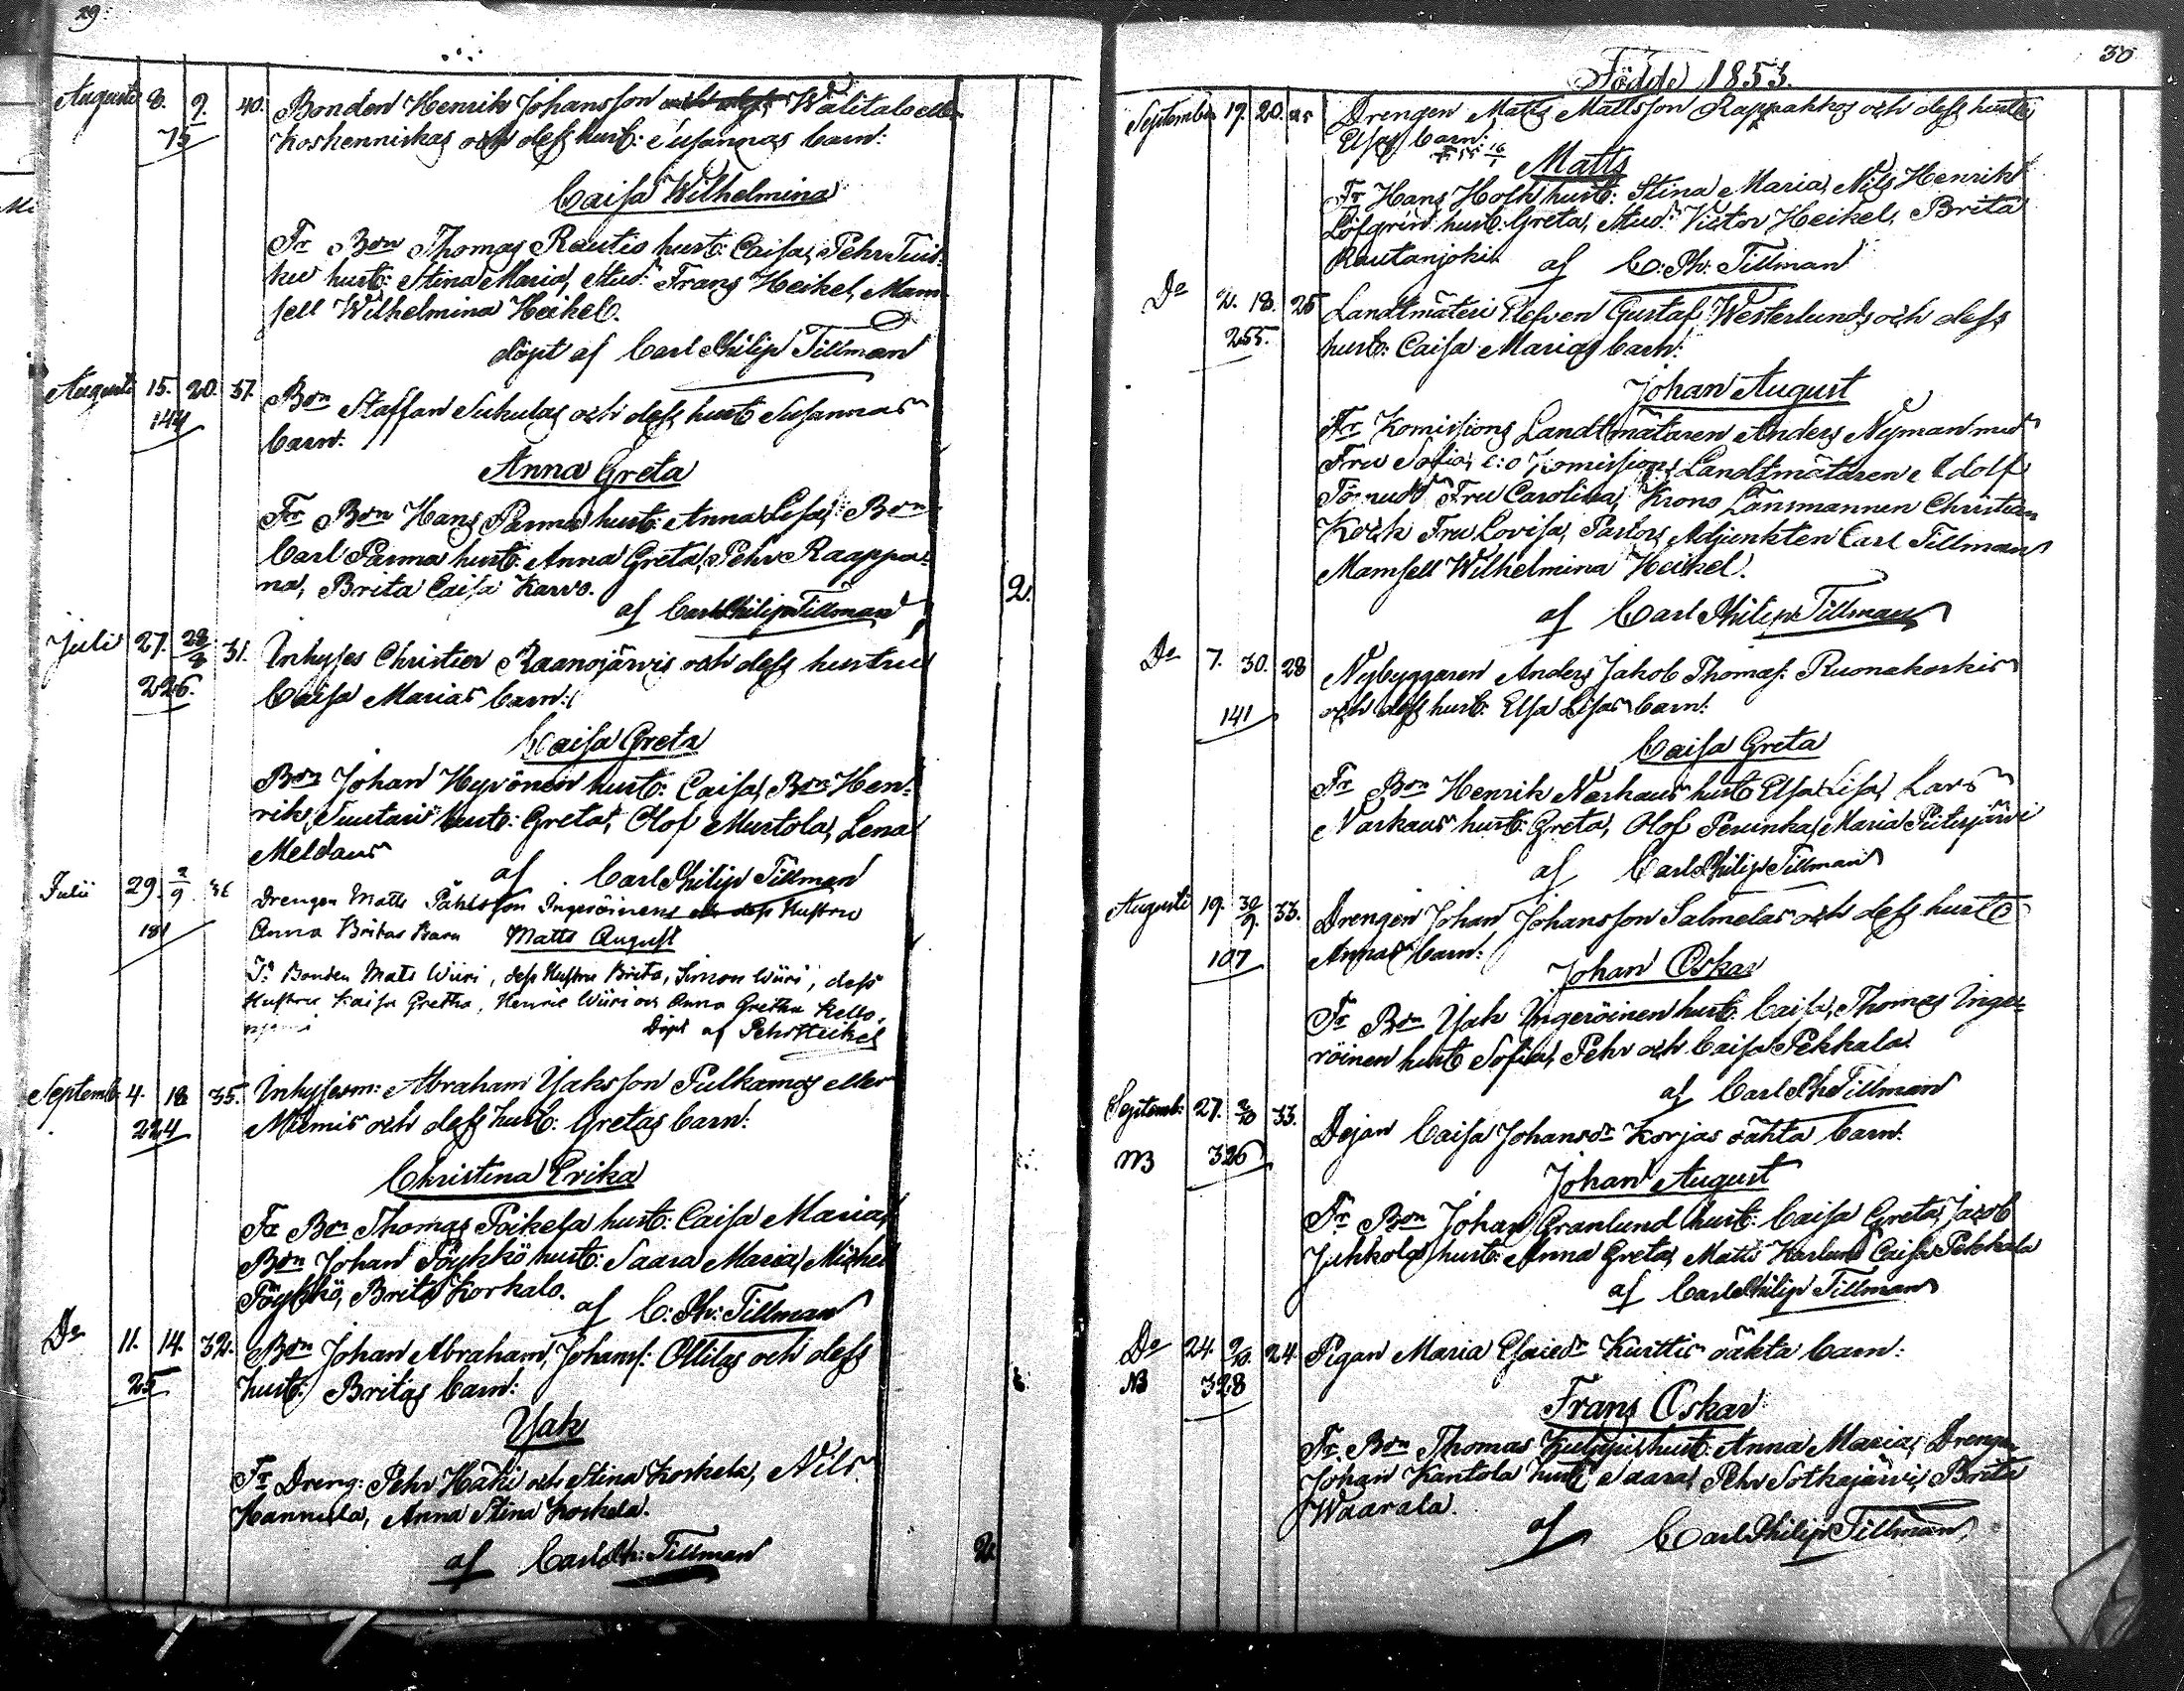 29.
Augusti 8. 9. 40. Bonden Henrik Johansson Walitalo eller
75 Koskenniskas och dess hust: Susannas barn:
Caisa Wilhelmina
Fr Bon Thomas Rautio hust: Caisa, Pehr Tuis-
ku hust: Stina Maria, Stud: Frans Heikel, Mam-
sell Wilhelmina Heikel.
döpt af Carl Philip Tillman
Augusti 15. 20. 37. Bon Staffan Sukulas och dess hust Susannas
144 barn:
Anna Greta
Fr Bon Hans Parma hust: Anna Lisa, Bon
Carl Parma hust: Anna Greta, Pehr Raappa-
na, Brita Caisa Karvo.
af Carl Philip Tillman
2.
Juli 27. 28/8 31. Inhyses Christier Raanojärvis och dess hustru
226. Caisa Marias barn:
Caisa Greta
Bon Johan Hyvönen hust: Caisa, Bon Hen-
rik Suutari hust: Greta, Olof Mustola, Lena
Meldaus
af Carl Philip Tillman
Julii 29. 2/9 36 Drengen Matts Påhlsson Ingeröinens och dess Hustru
181 Anna Britas Barn Matts August
Fr Bonden Mats Wiiri, dess Hustru Brita, Simon Wiiri, dess
Hustru Kaisa Gretha, Henric Wiiri och Anna Gretha Kello-
Döpt af Pehr Heikel
Septemb. 4. 18 35. Inhysesm: Abraham Isaksson Pulkamos eller
224 Niemis och dess hust: Gretas barn:
Christina Erika
Fr Bon Thomas Poikela hust: Caisa Maria,
Bon Johan Pöykkö hust: Saara Maria, Michel
Pöykkö, Brita Korkalo.
af C: Ph: Tillman
Do 11. 14. 32. Bon Johan Abraham Johanss: Ollilas och dess
25 hust: Britas barn:
Isak
Fr Dreng: Pehr Häki och Stina Koskela, Nils
Hannula, Anna Stina Koskela.
af Carl Ph: Tillman
2.
30
Födde 1853.
September 19. 20. 25 Drengen Matts Mattsson Rappahkos och dess hust:
Elsas barn:
Matts
Fr Hans Hoth hust: Stina Maria, Nils Henrik
Löfgrén hust: Greta, Stud: Victor Heikel, Brita
Rautanjoki. af C: Ph: Tillman
Do 2. 18. 25 Landtmäteri Eleven Gustaf Westerlunds och dess
255. hust: Caisa Marias barn:
Johan August
Fr Komissions Landtmätaren Anders Nyman med
Fru Sofia, e: o Komissions Landtmätaren Adolf
Törnudd Fru Carolina, Krono Länsmannen Christian
Kock Fru Lovisa, Pastors Adjunkten Carl Tillman
Mamsell Wilhelmina Heikel.
af Carl Philip Tillman
Do 7. 30. 28 Nybyggaren Anders Jakob Thomas: Ruonakoskis
141 och dess hust: Elsa Lisas barn:
Caisa Greta
Fr Bon Henrik Narkaus hust Elsa Lisa, Lars
Narkaus hust: Greta, Olof Perunka, Maria Pietsjärvi
af Carl Philip Tillman
Augusti 19. 30/9. 33. Drengen Johan Johansson Salmelas och dess hust:
107 Annas barn:
Johan Oskar
Fr Bon Isak Ingeröinen hust: Caisa, Thomas Inge-
röinen hust Sofia, Pehr och Caisa Pekkala.
af Carl Ph Tillman
Septemb: 27. 2/10 33. Dejan Caisa Johansdr Korjas oäkta barn:
NB 326
Johan August
Fr Bon Johan Granlund hust: Caisa Greta, Jacob
Juhkola hust: Anna Greta, Matts Karlund Caisa Pekkala
af Carl Philip Tillman
Do 24. 2/10. 24 Pigan Maria Esaiedr Kurttis oäkta barn:
NB 328
Frans Oskar
Fr. Bon Thomas Kulppi hust: Anna Maria, Drengen
Johan Kantola hust Saara, Pehr Sotkajärvi, Brita
Waarala.
af Carl Philip Tillman